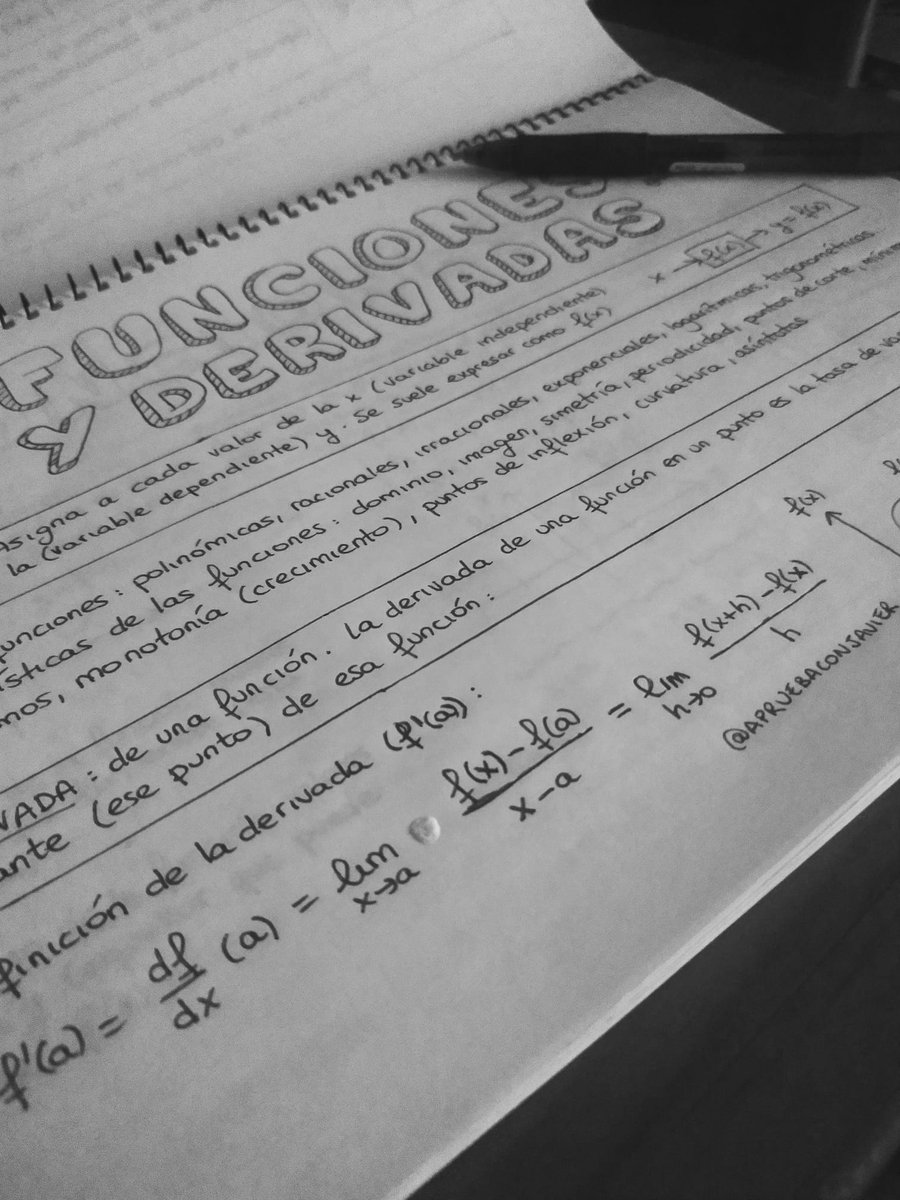 FUNCIONES
Y DERIVADAS
Asigna a cada valor de la x (variable independiente)
la (variable dependiente) y. Se suele expresar como f(x)
x → f(x) → y = f(x)
funciones: polinómicas, racionales, irracionales, exponenciales, logarítmicas, trigonométricas.
ísticas de las funciones: dominio, imagen, simetría, periodicidad, puntos de corte, mínim
mos, monotonía (crecimiento), puntos de inflexión, curvatura, asíntotas
VADA: de una función. La derivada de una función en un punto es la tasa de va
ante (ese punto) de esa función:
finición de la derivada (f'(a)):
f'(a) = df/dx (a) = lim x→a f(x)-f(a)/x-a = lim h→0 f(x+h)-f(x)/h
f(x)
@APRUEBACONJAVIER